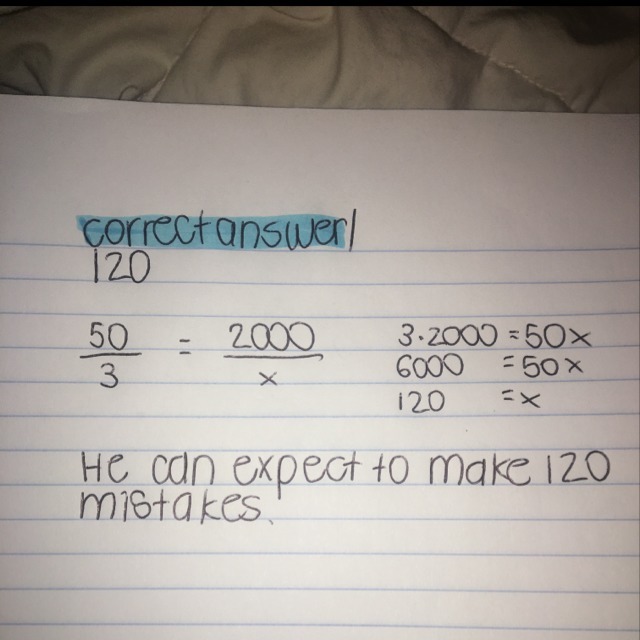 correct answer/
120
50/3 = 2000/x
3·2000 = 50x
6000 = 50x
120 = x
He can expect to make 120
mistakes.